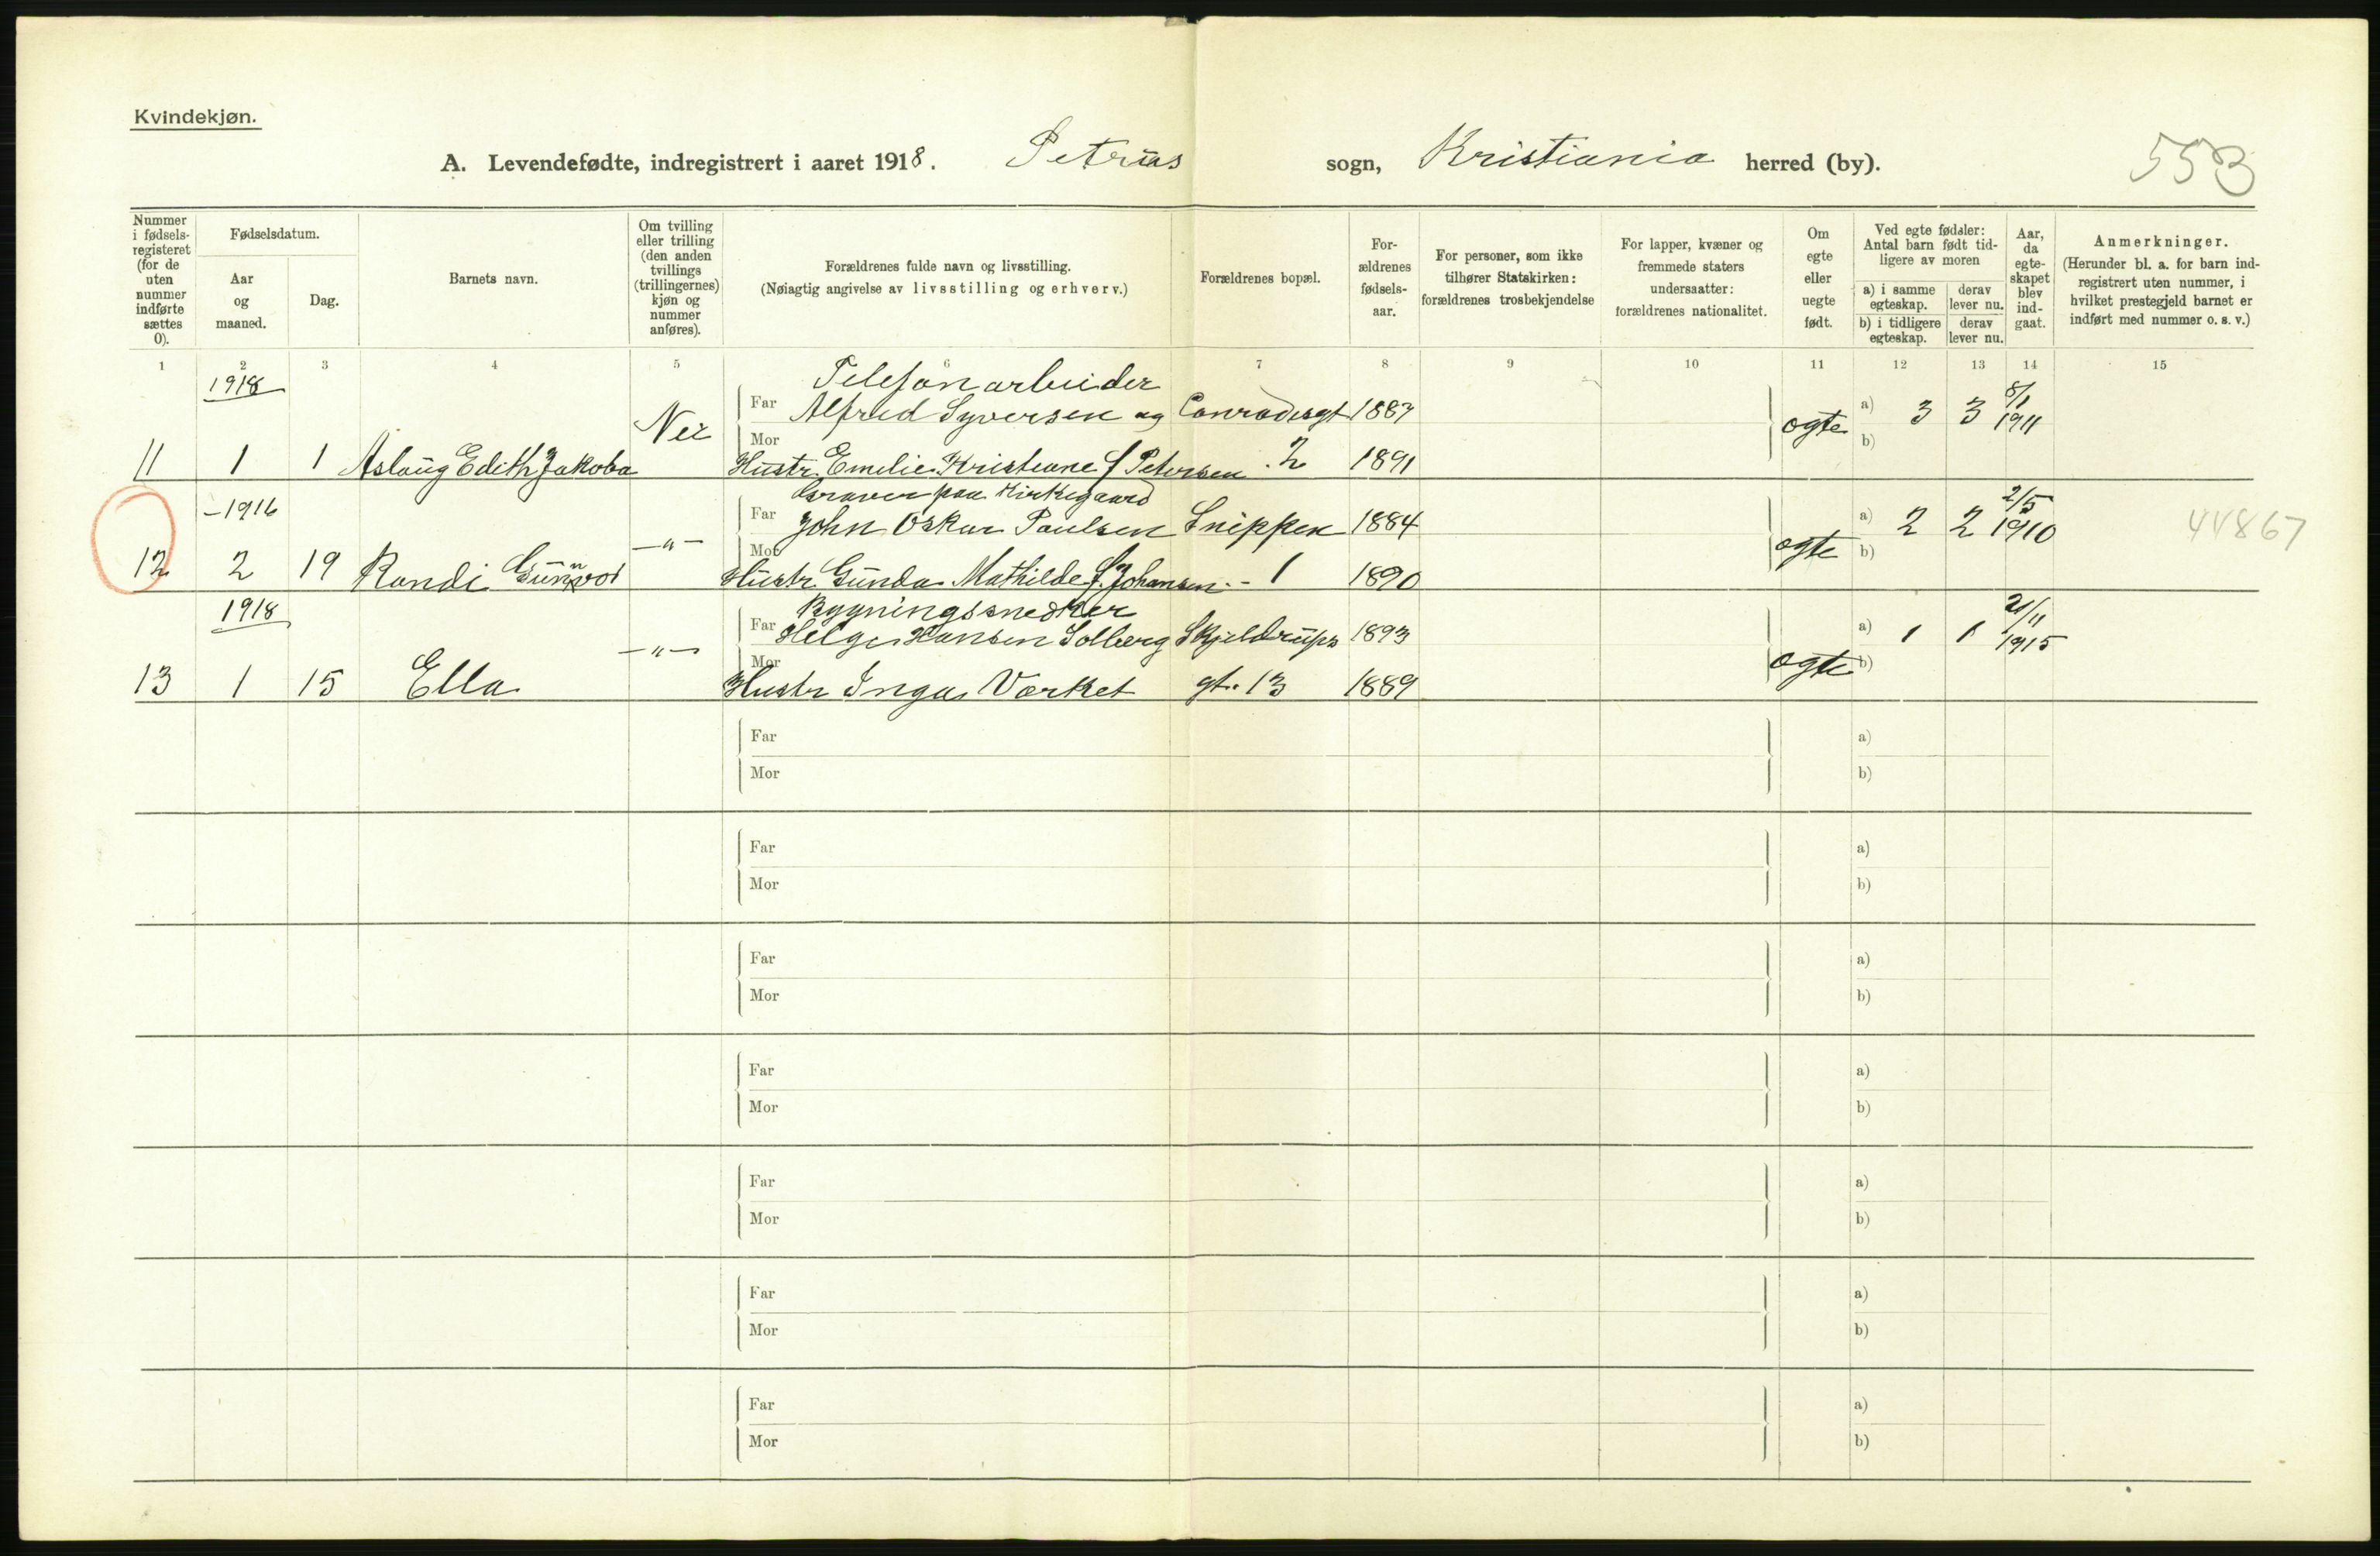 Kvindekjøn.
A. Levendefødte, indregistrert i aaret 1918. Petrus sogn, Kristiania herred (by). 553
Nummer i fødsels-registeret (for de uten nummer indførte sættes 0).
Fødselsdatum.
Aar og maaned.
Dag.
Barnets navn.
Om tvilling eller trilling (den anden tvillings (trillingernes) kjøn og nummer anføres).
Forældrenes fulde navn og livsstilling.
(Nøiagtig angivelse av livsstilling og erhverv.)
Forældrenes bopæl.
For-ældrenes fødsels-aar.
For personer, som ikke tilhører Statskirken: forældrenes trosbekjendelse
For lapper, kvæner og fremmede staters undersaatter: forældrenes nationalitet.
Om egte eller uegte født.
Ved egte fødsler: Antal barn født tid-ligere av moren
a) i samme egteskap. derav lever nu.
b) i tidligere egteskap. derav lever nu.
Aar, da egte-skapet blev ind-gaat.
Anmerkninger.
(Herunder bl. a. for barn ind-registrert uten nummer, i hvilket prestegjeld barnet er indført med nummer o. s. v.)
1 2 3 4 5 6 7 8 9 10 11 12 13 14 15
1918 Telefonarbeider
Nei Far Alfred Syversen og Conradisgt 1887 egte a) 3 3 8/1 1911
11 1 1 Aslaug Edith Jakoba Mor Hustr. Emilie Kristiane f Petersen . 2 1891 b)
- 1916 Graver paa Kirkegaard
-"- Far John Oskar Paulsen Snippen 1884 egte a) 2 2 2/5 1910 44867
12 2 19 Randi Gunvor Mor Hustr Gunda Mathilde f. Johansen. - 1 1890 b)
1918 Bygningssnedker
-"- Far Helge Hansen Solberg Skjeldrups 1893 egte a) 1 1 21/11 1915
13 1 15 Ella Mor Hustr Inga Værket gt. 13 1889 b)
Far a)
Mor b)
Far a)
Mor b)
Far a)
Mor b)
Far a)
Mor b)
Far a)
Mor b)
Far a)
Mor b)
Far a)
Mor b)